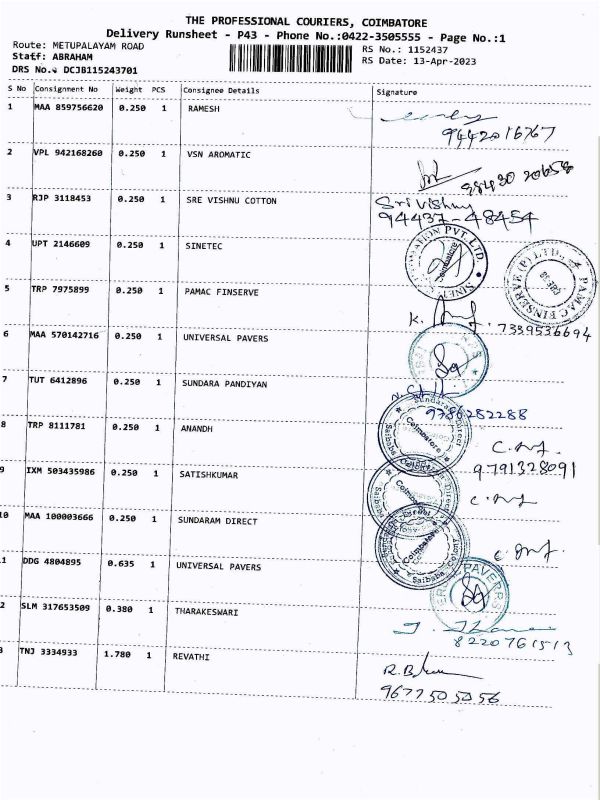 THE PROFESSIONAL COURIERS, COIMBATORE
Delivery Runsheet - P43 - Phone No.:0422-3505555 - Page No.:1
Route: METUPALAYAM ROAD RS No.: 1152437
Staff: ABRAHAM RS Date: 13-Apr-2023
DRS No.: DCJB115243701
S No Consignment No Weight PCS Consignee Details Signature
1 MAA 859756620 0.250 1 RAMESH
9442016767
2 VPL 942168260 0.250 1 VSN AROMATIC
98430 20658
3 RJP 3118453 0.250 1 SRE VISHNU COTTON Sri Vishnu
94437-48454
4 UPT 2146609 0.250 1 SINETEC
5 TRP 7975899 0.250 1 PAMAC FINSERVE
K. 7339536694
6 MAA 570142716 0.250 1 UNIVERSAL PAVERS
7 TUT 6412896 0.250 1 SUNDARA PANDIYAN
9786282288
8 TRP 8111781 0.250 1 ANANDH
9791328091
9 IXM 503435986 0.250 1 SATISHKUMAR
10 MAA 100003666 0.250 1 SUNDARAM DIRECT
1 DDG 4804895 0.635 1 UNIVERSAL PAVERS
2 SLM 317653509 0.380 1 THARAKESWARI
8220761513
3 TNJ 3334933 1.780 1 REVATHI
R.B
9677505056